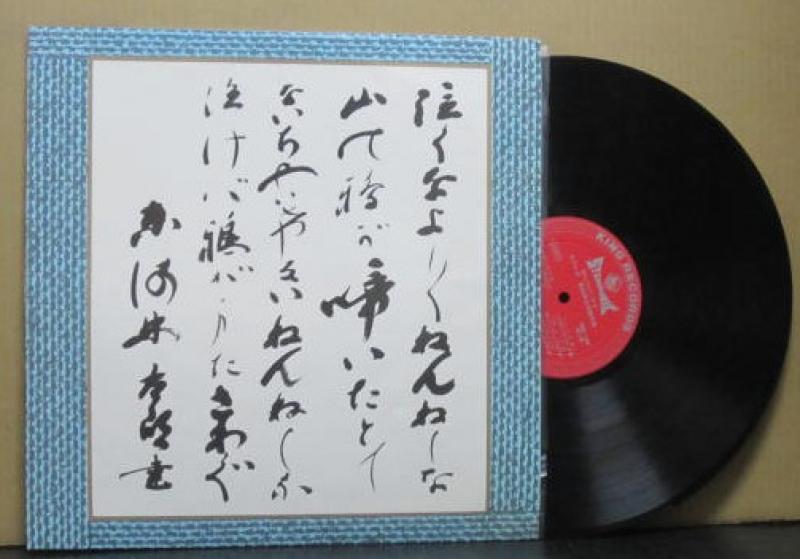 泣くなよし〱ねんねしな
山の鴉が啼いたとて
ないちやいけないねんねしな
泣けば鴉がまたさわぐ
東海林太郎書
KING RECORDS